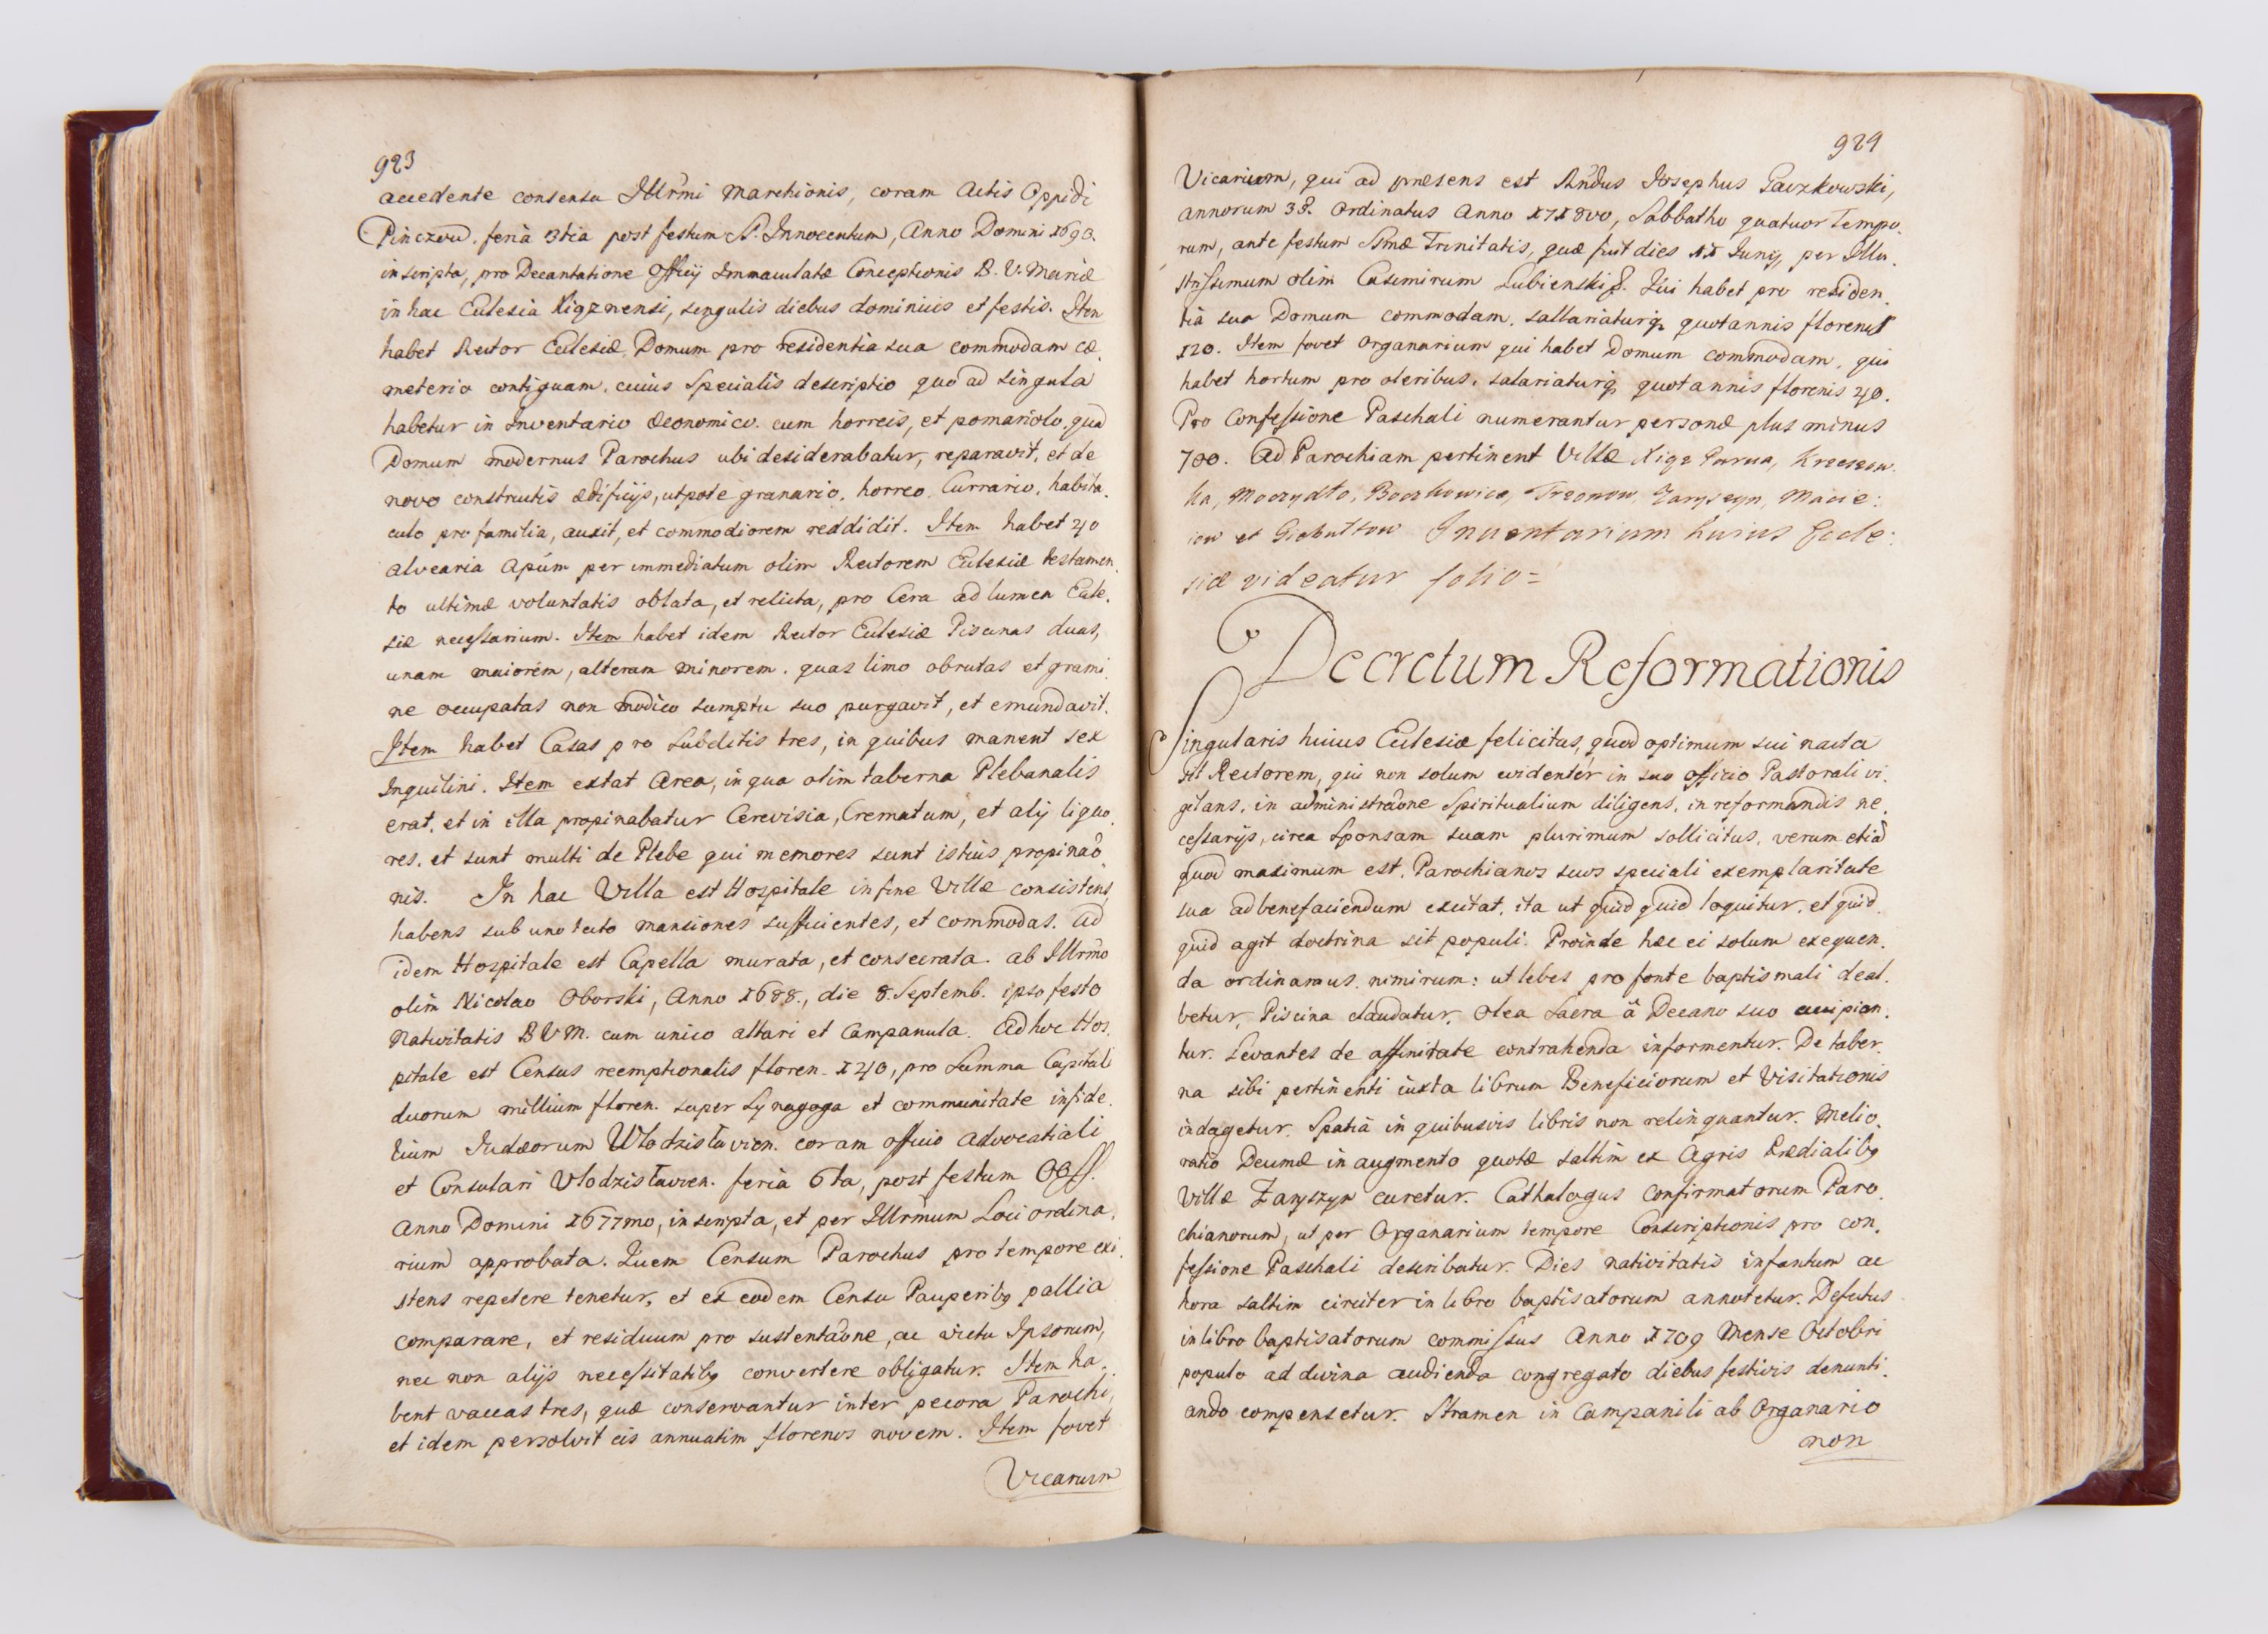 923
accedente consensu Illr̃mi Marchionis, coram Actis Oppidi
Pinczow. feria 3tia post festum S. Innocentum, Anno Domini 1693.
inscripta, pro Decantatione Officij Immaculatæ Conceptionis B. V. Mariæ
in hac Eclesia Xigznensi, singulis diebus dominicis et festis. Item
habet Rector Eclesiæ, Domum pro residentia sua commodam cæ.
meterio contiguam, cuius specialis descriptio quo ad singula
habetur in Inventario œconomico. cum horreis, et pomariolo, quã
Domum modernus Parochus ubi desiderabatur, reparavit, et de
novo constructis ædificijs, utpote granario, horreo, Currario, habita.
culo pro familia, auxit, et commodiorem reddidit. Item habet 40
alvearia Apum per immediatum olim Rectorem Eclesiæ testamen.
to ultimæ voluntatis oblata, et relicta, pro Cera ad lumen Ecle.
siæ necessarium. Item habet idem Rector Eclesiæ Piscinas duas,
unam maiorem, alteram minorem. quas limo obrutas et grami.
ne occupatas non modico sumptu suo purgavit, et emundavit.
Item habet Casas pro Subditis tres, in quibus manent sex
Inquilini. Item extat Area, in qua olim taberna Plebanalis
erat, et in illa propinabatur Cerevisia, Crematum, et alij liquo.
res. et sunt multi de Plebe qui memores sunt istius propinaõ.
nis. In hac Villa est Hospitale in fine Villæ consistens,
habens sub uno tecto mansiones sufficientes, et commodas. ad
idem Hospitale est Capella murata, et consecrata. ab Illr̃mo
olim Nicolao Oborski, Anno 1688., die 8. Septemb. ipso festo
Nativitatis B V M. cum unico altari et Campanula. Ad hoc Hos.
pitale est Census reemptionalis floren. 140, pro Summa Capitali
duorum millium floren. super Synagoga et communitate infide.
lium Iudæorum Wlodzisłavien. coram officio advocatiali
et Consulari Vlodzisłavien. feria 6ta, post festum OO ss.
Anno Domini 1677mo, inscripta, et per Illr̃mum Loci ordina.
rium approbata. Quem Censum Parochus pro tempore exi.
stens repetere tenetur, et ex eodem Censu Pauperibq pallia
comparare, et residuum pro sustentaõne, ac victu Ipsorum,
nec non alijs necessitatibq convertere obligatur. Item ha.
bent vaccas tres, quæ conservantur inter pecora Parochi,
et idem persolvit eis annuatim florenos novem. Item fovet
Vicarium
924
Vicarium, qui ad præsens est Rñdus Iosephus Paczkowski,
annorum 38. Ordinatus Anno 1718vo, Sabbatho quatuor Tempo.
rum, ante festum Ssmæ Trinitatis, quæ fuit dies 11 Iunij, per Illu.
strissimum olim Casimirum Lubienski. Qui habet pro residen.
tia sua Domum commodam, sallariaturq quotannis florenis
120. Item fovet Organarium qui habet Domum commodam, qui
habet hortum pro oleribus, salariaturq quotannis florenis 40.
Pro Confessione Paschali numerantur personæ plus minus
700. Ad Parochiam pertinent Villæ Xigz Parva, Krzeszow.
ka, Moczydło, Boczkowice, Trzonow, Zaryszyn, Macie:
iow et Giebułtow Inventarium huius Eccle:
siæ videatur folio =
Decretum Reformationis
Singularis huius Eclesiæ felicitas, quod optimum sui nacta
sit Rectorem, qui non solum evidenter in suo officio Pastorali vi.
gilans, in administraõne Spiritualium diligens, in reformandis ne.
cessarijs, circa Sponsam suam plurimum sollicitus, verum etiã
quod maximum est, Parochianos suos speciali exemplaritate
sua ad benefaciendum excitat, ita ut quid quid loquitur, et quid.
quid agit doctrina sit populi. Proinde hæc ei solum exequen.
da ordinamus. nimirum: ut lebes pro fonte baptismali deal.
betur, Piscina claudatur, Olea Sacra â Decano suo accipian.
tur. Levantes de affinitate contrahenda informentur. De taber.
na sibi pertinenti iuxta librum Beneficiorum et Visitationis
indagetur. Spatia in quibusvis libris non relinquantur. Melio.
ratio Decimæ in augmento quotæ saltim ex Agris Prædialibq
Villæ Zaryszyn curetur. Cathalogus Confirmatorum Paro.
chianorum, ut per Organarium tempore Conscriptionis pro con.
fessione Paschali describatur. Dies nativitatis infantum ac
hora saltim circiter in libro baptisatorum annotetur. Defectus
in libro baptisatorum commissus Anno 1709 Mense Octobri
populo ad divina audienda congregato diebus festivis denunti.
ando compensetur. Stramen in Campanili ab Organario
non